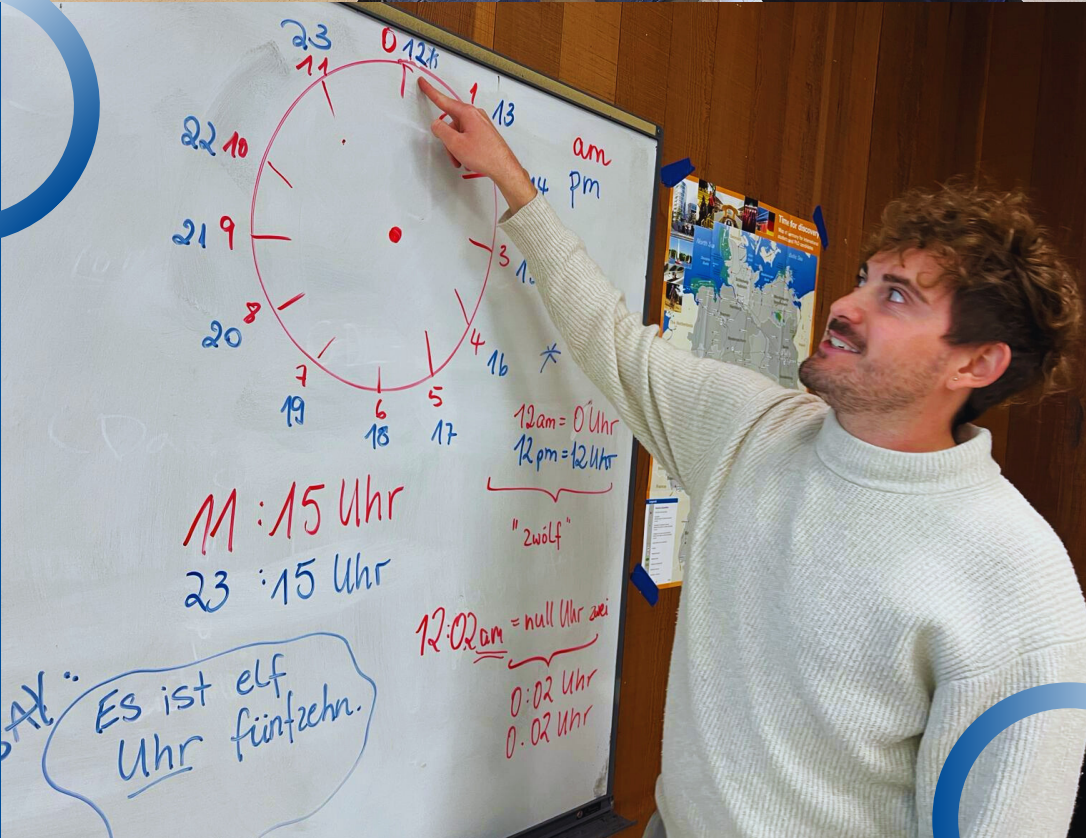 23 0 12
11 1 13
22 10 am
pm
21 9 3
8
20 4
16 *
7 5
19 6 17
18
12am = 0 Uhr
12pm = 12 Uhr
"zwölf"
11:15 Uhr
23:15 Uhr
12:02am = null Uhr zwei
0:02 Uhr
0.02 Uhr
Es ist elf
Uhr fünfzehn.
Time for discovery